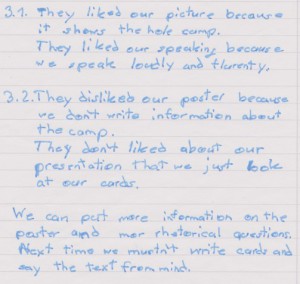 3.1. They liked our picture because
it shows the hole camp.
They liked our speaking because
we speak loudly and flurenty.
3.2. They disliked our poster because
we don't write information about
the camp.
They don't liked about our
presentation that we just look
at our cards.
We can put more information on the
poster and mor rhetorical questions.
Next time we mustn't write cards and
say the text from mind.